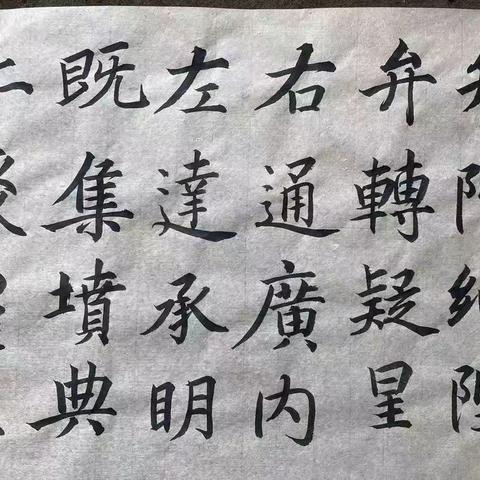 弁轉疑星
右通廣内
左達承明
既集墳典